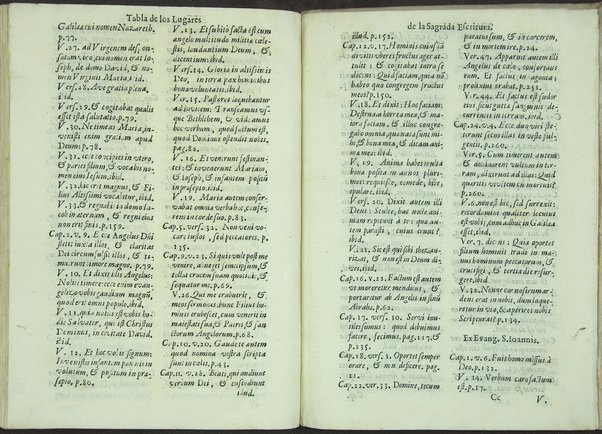 Tabla de los Lugares
Galileæ, cui nomen Nazareth.
p.77.
V. 27. ad Virginem desponsatam
viro, cui nomen erat Ioseph,
de domo David, & nomen
Virginis Maria. ibid.
Vers. 28. Ave gratia plena,
ibid.
Vers. 29. & cogitabat qualis
esset ista salutatio. p.79.
V. 30. Ne timeas Maria, invenisti
enim gratiam apud
Deum: p.78.
V. 31. ecce concipies in utero,
& paries filium, & vocabis nomen
eius Iesum. ibid.
V. 32. hic erit magnus, & Filius
Altissimi vocabitur, ibid.
V. 33. & regnabit in domo Iacob
in æternum, & regni eius
non erit finis. p.159.
Cap. 2. v. 9. Ecce Angelus Dñi
stetit iuxta illos, & claritas
Dei circumfulsit illos, & timuerunt
timore magno. p.79.
V. 10. Et dixit illis Angelus:
Nolite timere: ecce enim evangelizo
vobis gaudium magnũ,
quod erit omni populo, ibid.
V. 11. quia natus est vobis hodie
Salvator, qui est Christus
Dominus, in civitate David.
ibid.
V. 12. Et hoc vobis signum:
Invenietis infantem pannis involutum,
& positum in præsepio.
p.80.
V. 13. Et subitò facta est cum
angelo multitudo militiæ cælestis,
laudantium Deum, &
dicentium: ibid.
Vers. 14. Gloria in altissimis
Deo, in terra pax hominibus
bonæ voluntatis, ibid.
Ver. 15. Pastores loquebantur
ad invicem: Transeamus usque
Bethlehem, & videamus
hoc verbum, quod factum est,
quod Dominus ostendit nobis.
pag. 82.
V. 16. Et venerunt festinantes:
& invenerunt Mariam,
& Ioseph, & infantem positũ
in præsepio. ibid.
V. 19. Maria autem conservabat
omnia verba hæc, conferens
in corde suo. p.83.
Cap. 5. vers. 32. Non veni vocare
iustos, sed peccatores, p.
135.
Cap. 9. v. 23. Si quis vult post me
venire, abneget semetipsum, &
tollat crucem suam quotidie,
& sequatur me. p.69.
V. 26. Qui me erubuerit, &
meos sermones: hunc Filius hominis
erubescet, cum venerit in
maiestate sua, & Patris, & sanctorum
Angelorum. p.68.
Cap. 10. v. 20. Gaudete autem
quod nomina vestra scripta
sunt in cælis, p.43.
Cap. 11. v. 28. Beati, qui audiunt
verbum Dei, & custodiunt
illud.
de la Sagrada Escritura.
illud. p.152.
Cap. 12. v. 17. Hominis cuiusdã
divitis uberes fructus ager attulit:
& cogitabat intra se
dicens: Quid faciam, quia non
habeo quo congregem fructus
meos? p.150.
V. 18. Et dixit: Hoc faciam:
Destruam horrea mea, & maiora
faciam, & illuc congregabo
omnia, quæ nata sunt mihi,
& bona mea, & dicam animæ
meæ: ibid.
V. 19. Anima habes multa
bona posita in annos plurimos:
requiesce, comede, bibe,
epulare. ibid.
Vers. 20. Dixit autem illi
Deus: Stulte, hac nocte animam
repetunt à te: quæ autem
parasti, cuius erunt?
ibid.
V. 21. Sic est qui sibi thezaurizat,
& non est in Deum dives.
ibid.
Cap. 16. v. 22. Factum est autem
ut moreretur mendicus, &
portaretur ab Angelis in sinũ
Abrahæ. p.62.
Cap. 17. vers. 10. Servi inutiles
sumus: quod debuimus
facere, fecimus, pag. 117. &
p. 235.
Cap. 18. vers. 1. Oportet semper
orare, & non deficere, pag.
21.
Cap. 22. ver. 33. Domine, tecum
paratus sum, & in carcerem,
& in mortem ire. p.24.
Ver. 43. Apparuit autem illi
Angelus de cælo, confortans
eum. Et factus in agonia:
prolixius orabat. p.251.
V. 44. Et factus est sudor eius
sicut guttæ sanguinis decurrentis
in terram, ibid.
Cap. 24. v. 4. Ecce duo viri steterunt
secus illas in veste fulgenti.
p.260.
Ver. 5. Cum timerent autem
& declinarent vultum in terram,
dixerunt ad illas: Quid
quæritis viventem cum mortuis?
ibid.
V. 6. non est hic, sed surrexit:
recordamini qualiter locutus
est vobis, cum adhuc in Galilæa
esset, ibid.
Ver. 7. dicens: Quia oportet
filium hominis tradi in manus
hominum peccatorum, &
crucifigi, & tertia die resurgere.
ibid.
Ver. 32. Nonne cor nostrum ardens
erat in nobis, dum loqueretur
in via, & aperiret nobis
Scripturas? p.134.
Ex Evang. S. Ioannis.
Cap. 1. v. 6. Fuit homo missus à
Deo, p.132.
V. 14. Verbum caro factum
est. p.17.
Cc
V.